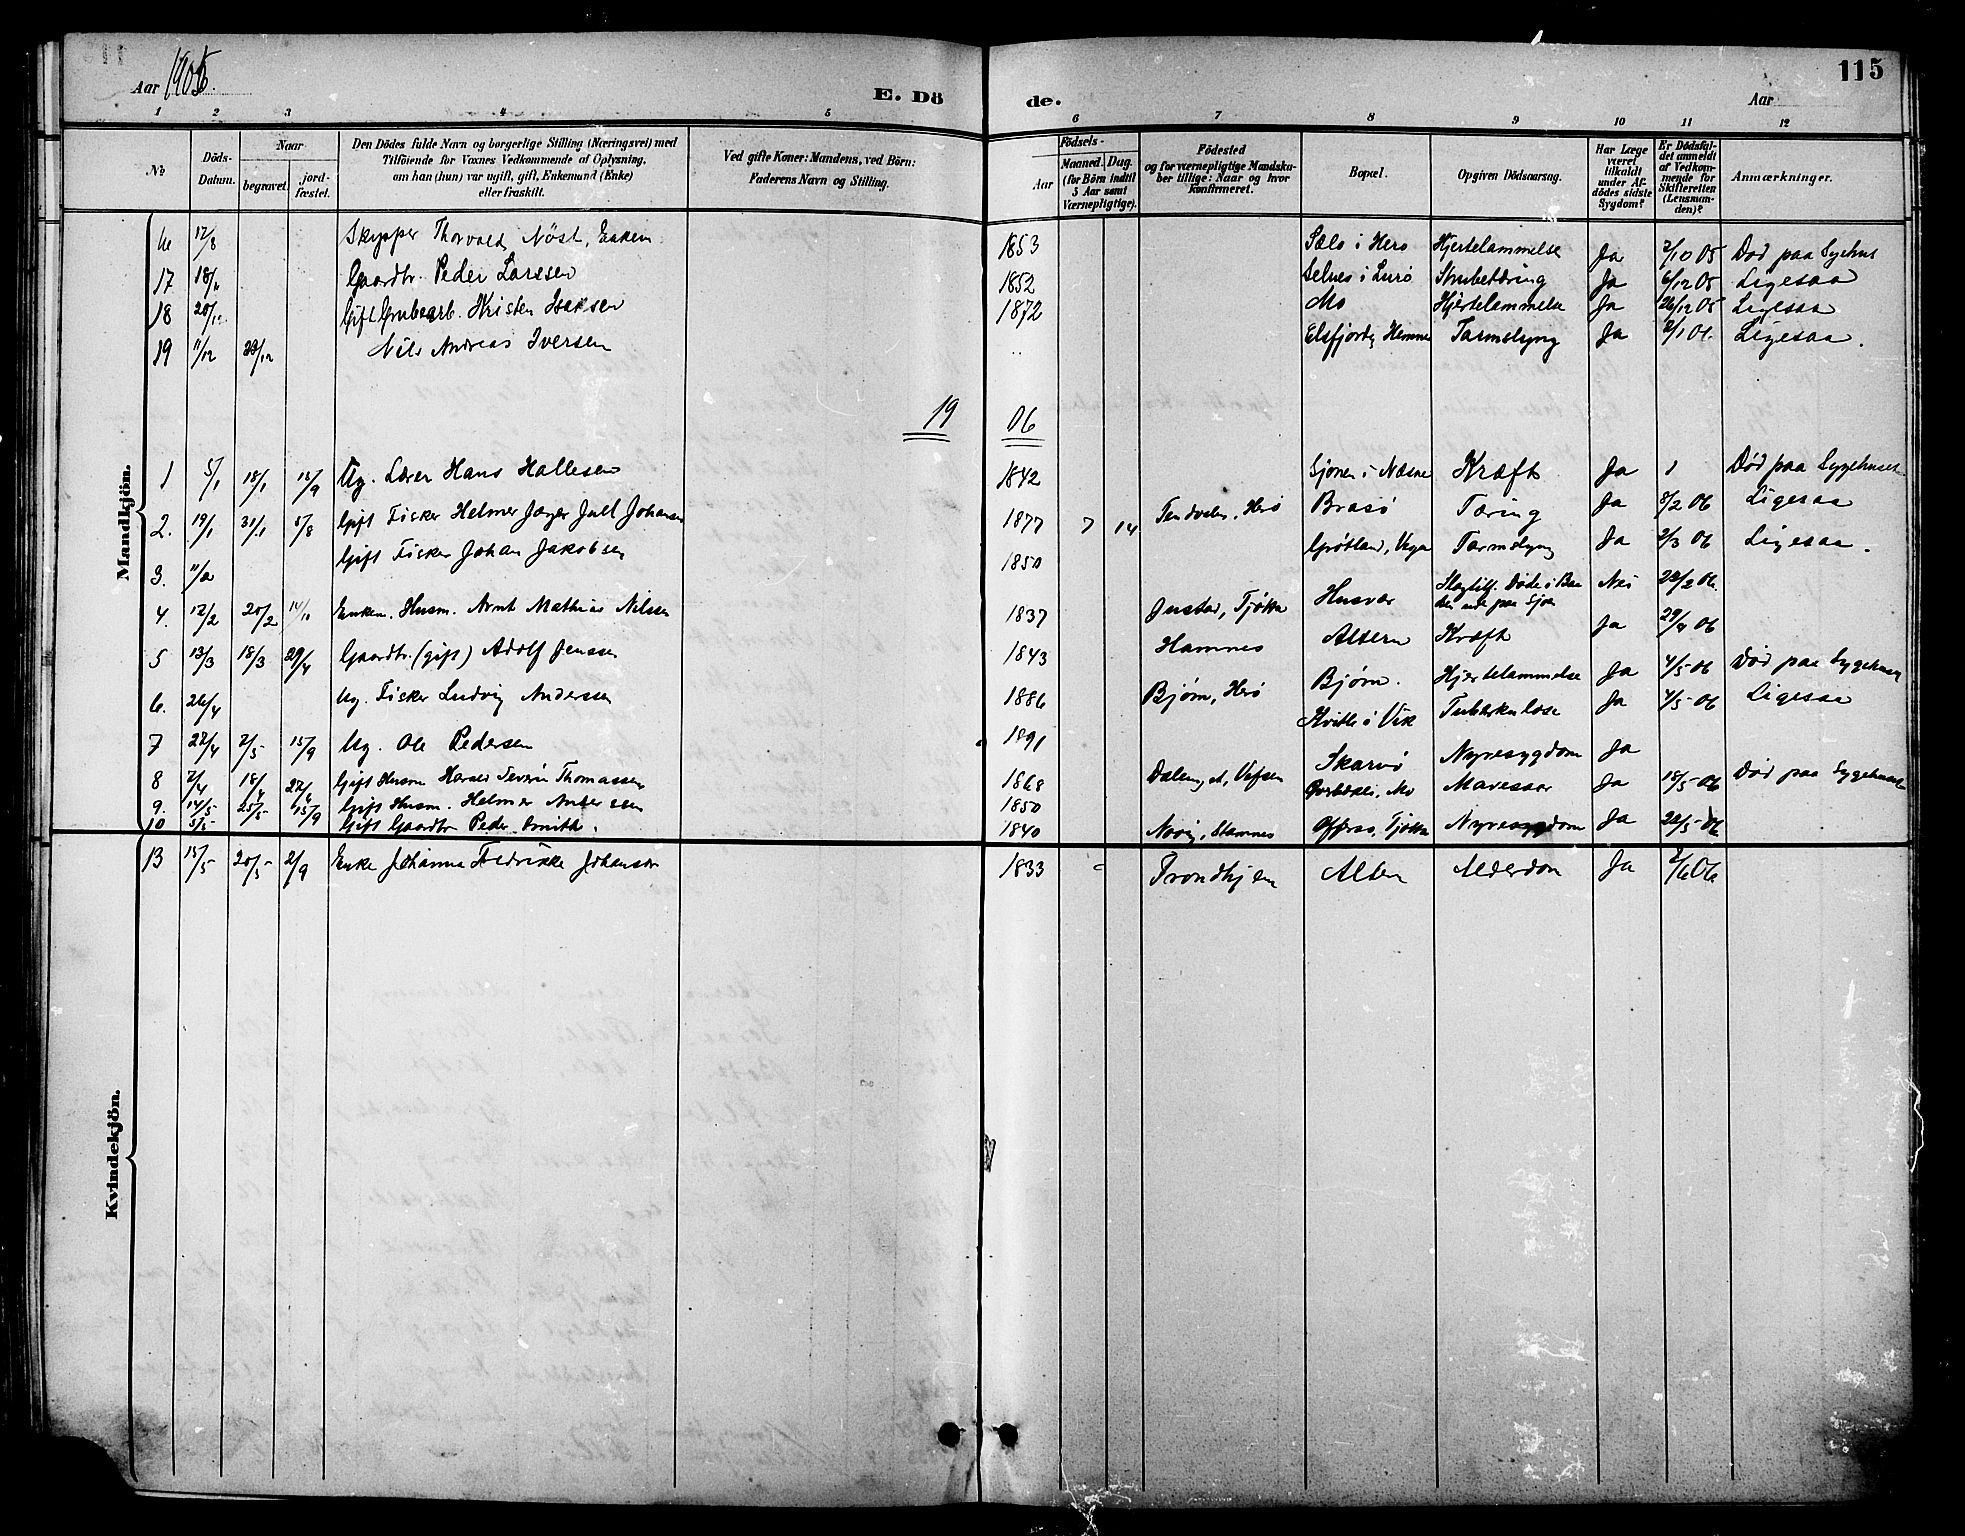 Aar 1905.
E. Dö de.
115
Aar
1 2 3 4 5 6 7 8 9 10 11 12
No
Döds-Datum.
Naar
begravet.
jord-fæstet.
Den Dödes fulde Navn og borgerlige Stilling (Næringsvei) med
Tilföiende for Voxnes Vedkommende af Oplysning,
om han (hun) var ugift, gift, Enkemand (Enke)
eller fraskilt.
Ved gifte Koner: Mandens, ved Börn:
Faderens Navn og Stilling.
Födsels-
Aar
Maaned. Dag.
(for Börn indtil
5 Aar samt
Værnepligtige).
Födested
og for værnepligtige Mandska-
ber tillige: Naar og hvor
konfirmeret.
Bopæl.
Opgiven Dödsaarsag.
Har Læge
været
tilkaldt
under Af-
dödes sidste
Sygdom?
Er Dödsfal-
det anmeldt
af Vedkom-
mende for
Skifteretten
(Lensman-
den)?
Anmærkninger.
Mandkjön.
17/8 Skipper Thorvald Nöst, Enkem 1853 i Herø Hjertelammelse Ja 2/10 05 Død paa Sygehus
17 Gaardbr. Peder Larssen 1852 Selnes i Lurö Strubetæring Ja 6/12 05 Ligesaa
18 Gift Grubearb. Kristen Isaksen 1872 Mo Hjertelammelse Ja 26/12 05 Ligesaa
19 11/12 Nils Andreas Iversen .. Elsfjorden, Hemnes Tarmslyng Ja 2/1 06. Ligesaa.
19 06
1 5/1 18/1 Ug. Lærer Hans Hallesen 1842 Sjonen i Næsne Kræft Ja Død paa Sygehuset
2. 19/1 Gift Fisker Helmer Jæger Jull Johansen 1877 7 14 Herö Brasö Tæring Ja 8/2 06 Ligesaa
3. 11/2 Gift Fisker Johan Jakobsen 1850 Grötland, Vega Tarmslyng Ja 2/3 06 Ligesaa.
4. 12/2 20/2 14/10 Enkem. Husm. Arnt Mathias Nilssen 1837 Tjötta Husvær Slagtilf. Døde i Baa- Nei 22/2 06.
5 13/3 18/3 29/4 Gaardbr. (gift) Adolf Jenssen 1843 Hamnes Altern Kræft Ja 06
6. 26/4 Ug. Fisker Ludvig Anderssen 1886 Bjørn, Herö Bjørn. Hjertelammelse Ja 4/5 06 Død paa Sygehuset
7 22/4 2/5 15/9 Ug. Ole Pedersen 1891 i Vik Tuberkulose Ja 4/5 06 Ligesaa
8 7/4 18/4 Gift Husm Harald Severin Thomassen 1868 Vefsen Skarvö Nyresygdom Ja
9. 14/5 25/5 15/9 Gift Husm. Helmer Anderssen 1850 Mo Mavesaar Ja 18/5 06 Død paa Sygehuset
10 5/5 Gift Gaardbr Peder Smith. 1840 Stamnes Tjötta Nyresygdom Ja 22/5 06
Kvindekjön.
13 15/5 20/5 2/9 Enke Johanna Fredrikke Johansen 1833 Trondhjem Alten Alderdom Ja 2/6 06